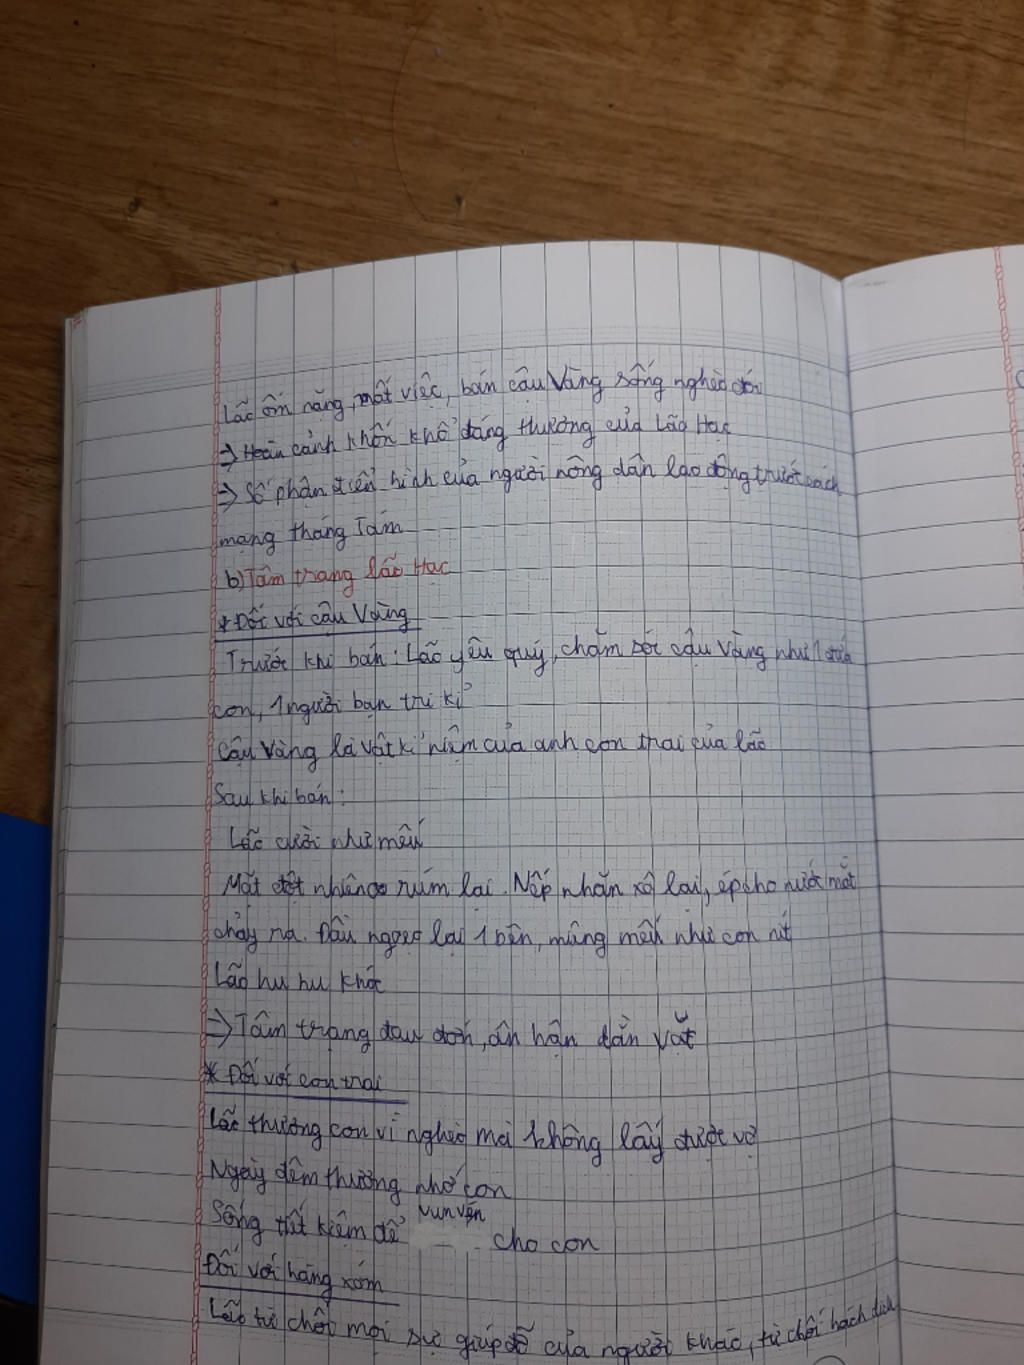 Lão ốm nặng, mất việc, bán cậu Vàng sống nghèo đói
=> Hoàn cảnh khốn khổ đáng thương của Lão Hạc
=> Số phận điển hình của người nông dân lao động trước cách
mạng tháng Tám
b) Tâm trạng lão Hạc
* Đối với cậu Vàng
Trước khi bán: Lão yêu quý, chăm sóc cậu Vàng như 1 đứa
con, 1 người bạn tri kỉ
Cậu Vàng là vật kỉ niệm của anh con trai của lão
Sau khi bán:
Lão cười như mếu
Mặt đột nhiên co rúm lại. Nếp nhăn xô lại, ép cho nước mắt
chảy ra. Đầu ngoẹo lại 1 bên, miệng mếu như con nít
Lão hu hu khóc
=> Tâm trạng đau đớn, ân hận dằn vặt
* Đối với con trai
Lão thương con vì nghèo mà không lấy được vợ
Ngày đêm thương nhớ con
Sống tiết kiệm để vun vén cho con
Đối với hàng xóm
Lão từ chối mọi sự giúp đỡ của người khác, từ chối hách dịch